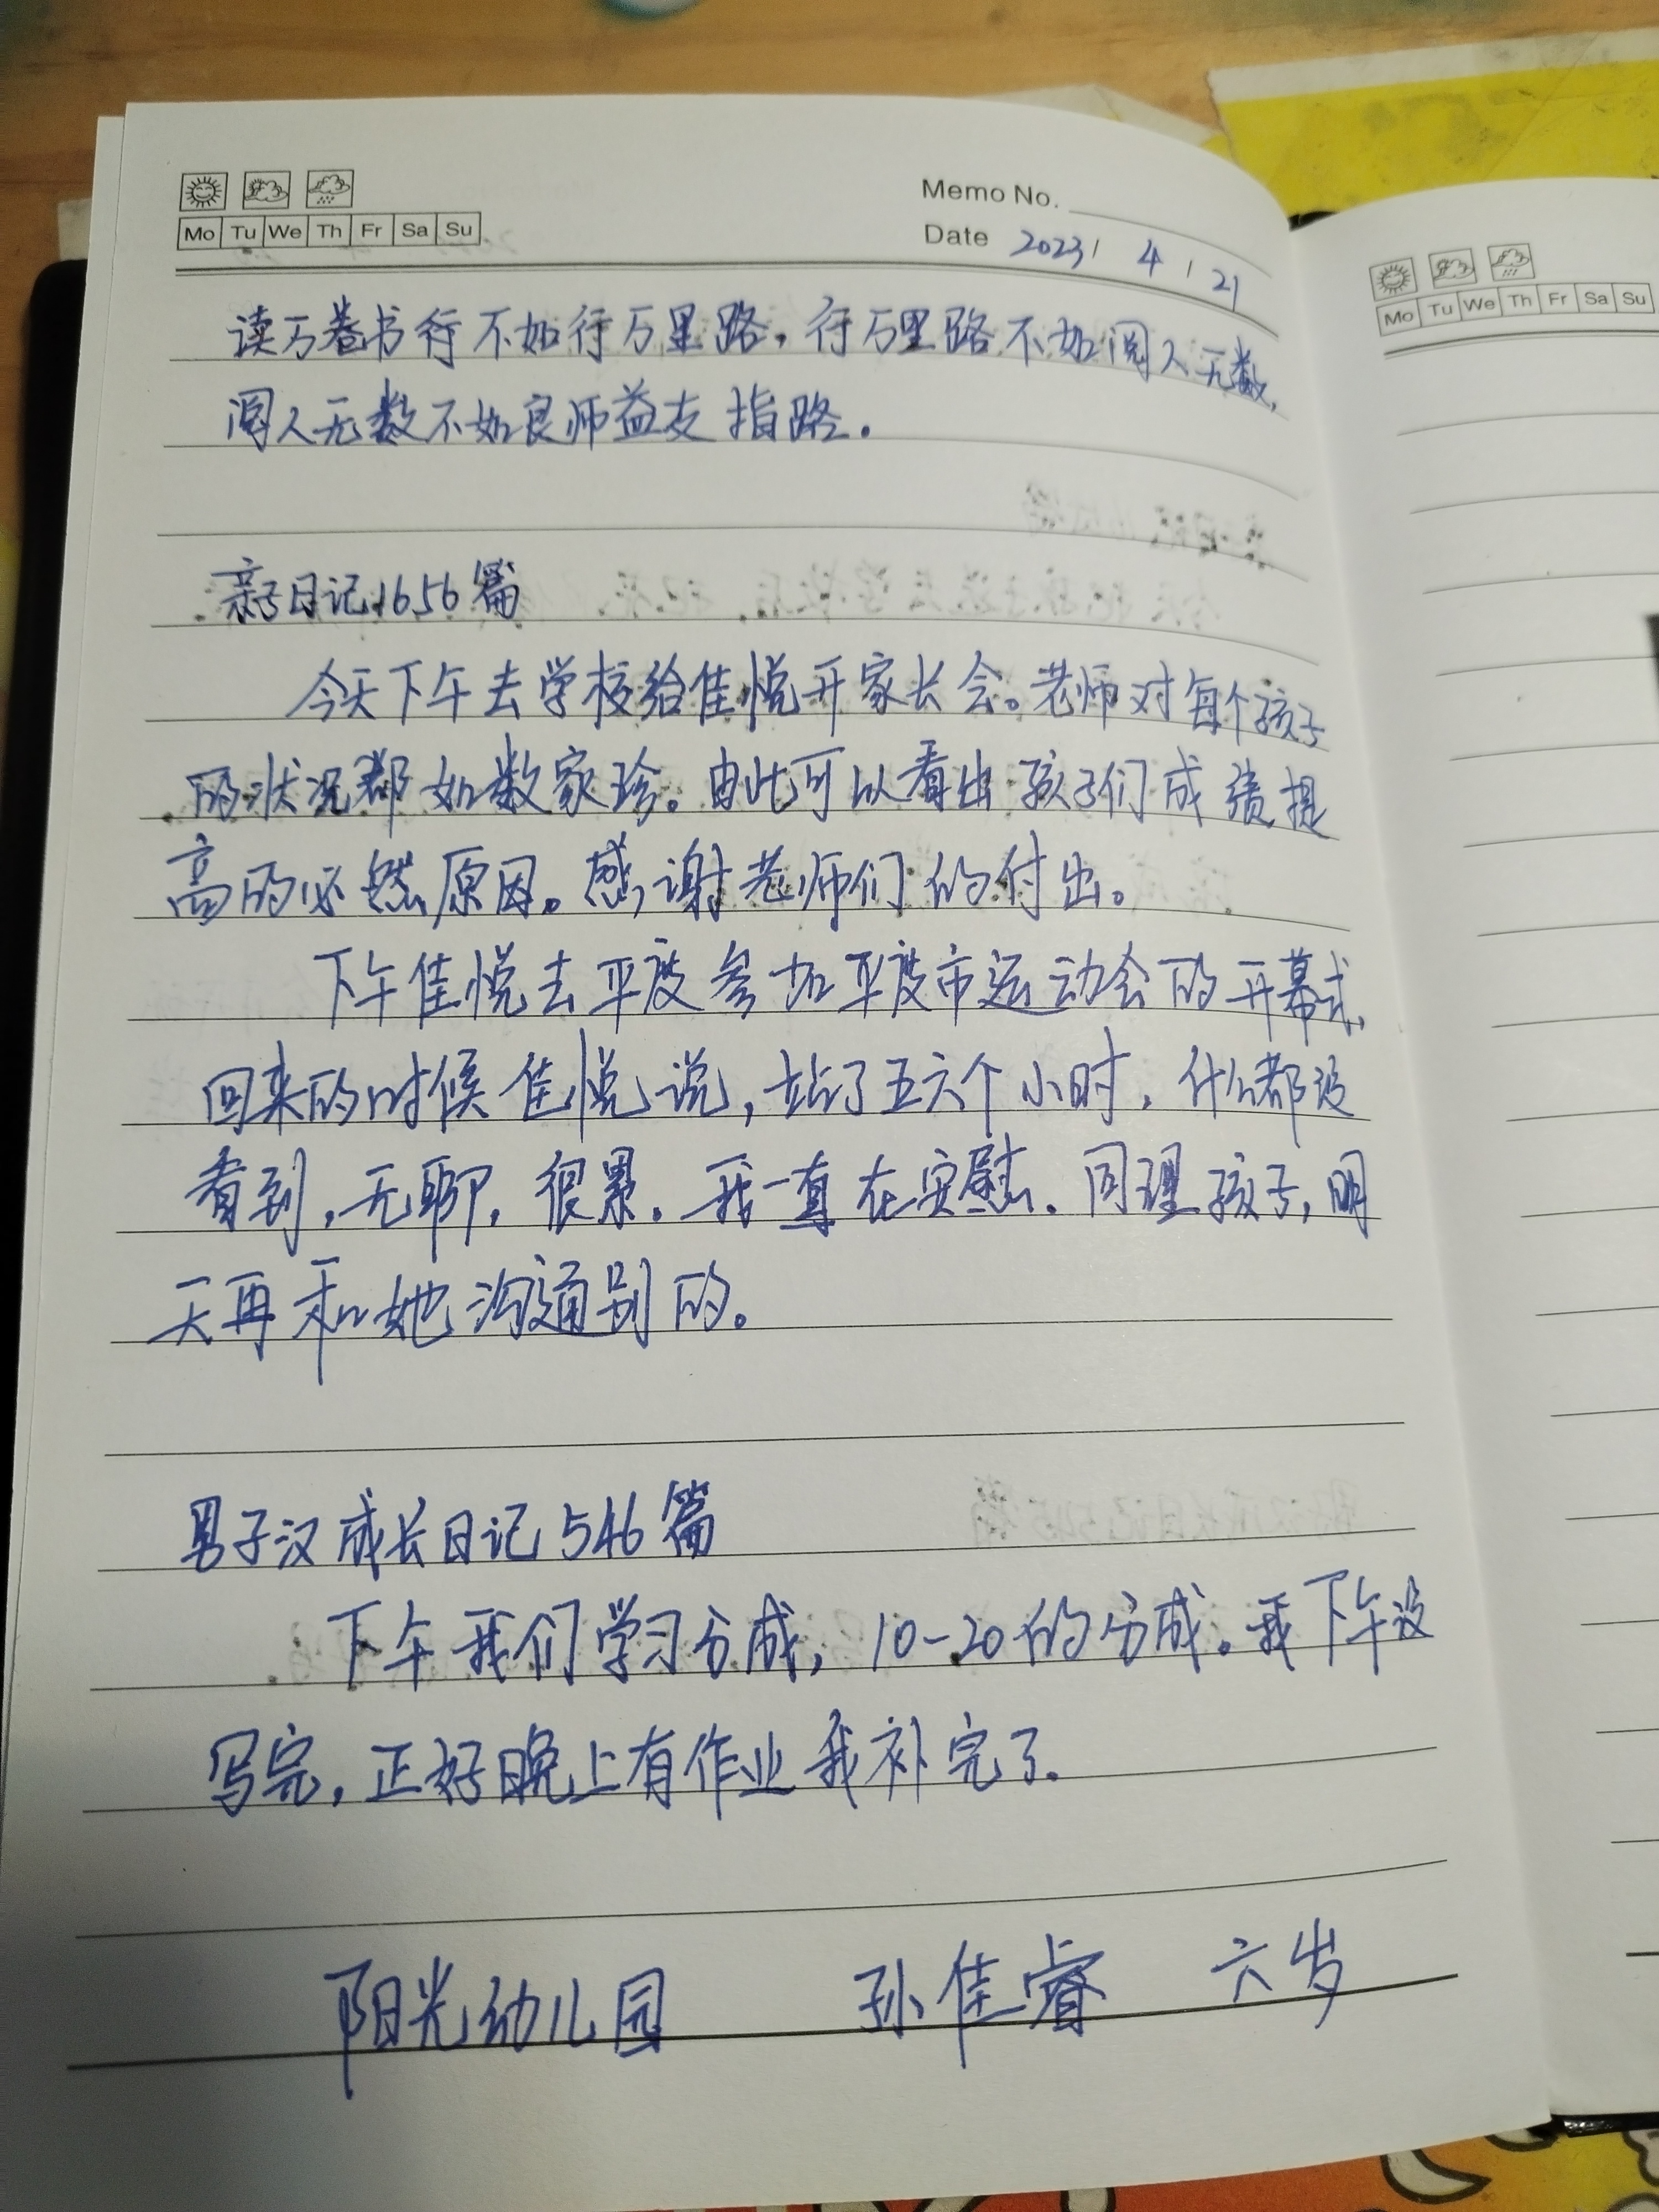 Memo No.
Mo Tu We Th Fr Sa Su
Date 2023/ 4 / 21
读万卷书行不如行万里路，行万里路不如阅人无数，
阅人无数不如良师益友指路。
亲子日记1656篇
今天下午去学校给佳悦开家长会。老师对每个孩子
的状况都如数家珍。由此可以看出孩子们成绩提
高的必然原因。感谢老师们的付出。
下午佳悦去平度参加平度市运动会的开幕式，
回来的时候佳悦说，站了五六个小时，什么都没
看到，无聊，很累。我一直在安慰。同理孩子，明
天再和她沟通别的。
男子汉成长日记546篇
下午我们学习分成，10-20的分成。我下午没
写完，正好晚上有作业我补完了。
阳光幼儿园 孙佳睿 六岁
Mo Tu We Th Fr Sa Su